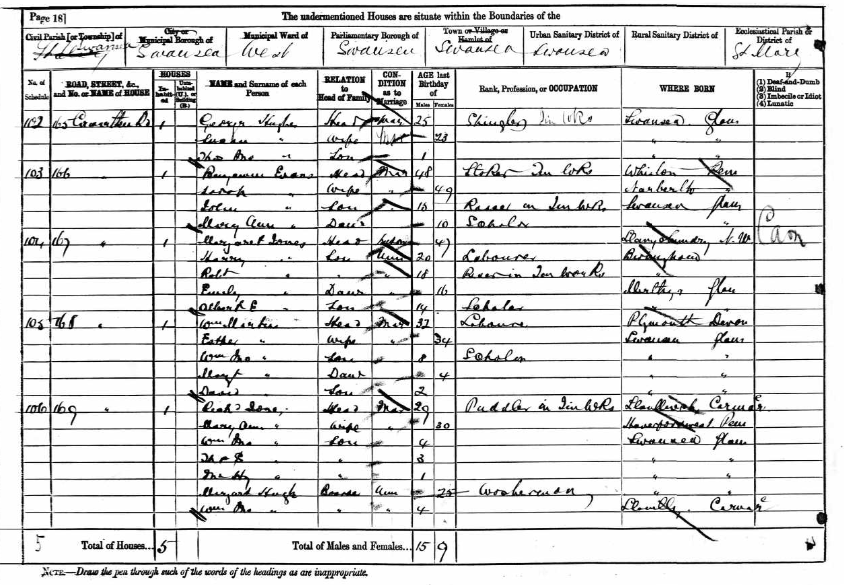 Page 18] The undermentioned Houses are situate within the Boundaries of the
Civil Parish [or Township] of
City or Municipal Borough of
Municipal Ward of
Parliamentary Borough of
Town or Village or Hamlet of
Urban Sanitary District of
Rural Sanitary District of
Ecclesiastical Parish or District of
Swansea Swansea West Swansea Swansea Swansea St Mary
No. of Schedule
ROAD, STREET, &c., and No. or NAME of HOUSE
HOUSES
Inhabited
Uninhabited (U.), or Building (B.)
NAME and Surname of each Person
RELATION to Head of Family
CONDITION as to Marriage
AGE last Birthday of
Males Females
Rank, Profession, or OCCUPATION
WHERE BORN
If
(1) Deaf-and-Dumb
(2) Blind
(3) Imbecile or Idiot
(4) Lunatic
102 165 1 George Hughes Head Mar 25 Shingler Tin Wks Swansea Glam
Susan " Wife 23 " "
Thos Jno " Son 1 " "
103 166 1 Benjamin Evans Head Mar 48 Stoker Tin Wks Pem
Sarah " Wife " 49 Narberth "
John " Son 18 in Tin Wks Swansea Glam
Mary Ann " Daur 10 Scholar " "
104 167 " 1 Margaret Jones Head Widow 47 N. W.
Harry " Son Unm 20 Labourer
Robt " " " 18 in Tin Works "
Emily " Daur 16 Merthyr Glam
Albert E " Son 14 Scholar "
105 168 " 1 Wm Martin Head Mar 37 Labourer Plymouth Devon
Esther " Wife " 34 Swansea Glam
Wm Jno " Son 8 Scholar " "
Margt " Daur 4 " "
David " Son 2 " "
106 169 " 1 Richd Jones Head Mar 29 Puddler in Tin Wks Carmar
Mary Ann " Wife " 30 Haverfordwest Pem
Wm Jno " Son 4 Swansea Glam
Thos " " 3 " "
Jno Hy " " 1 " "
Margard Hugh Unm 25 " "
Wm Jno " 4 Llanelly Carmar
5 Total of Houses... 5 Total of Males and Females... 15 9
NOTE.—Draw the pen through such of the words of the headings as are inappropriate.